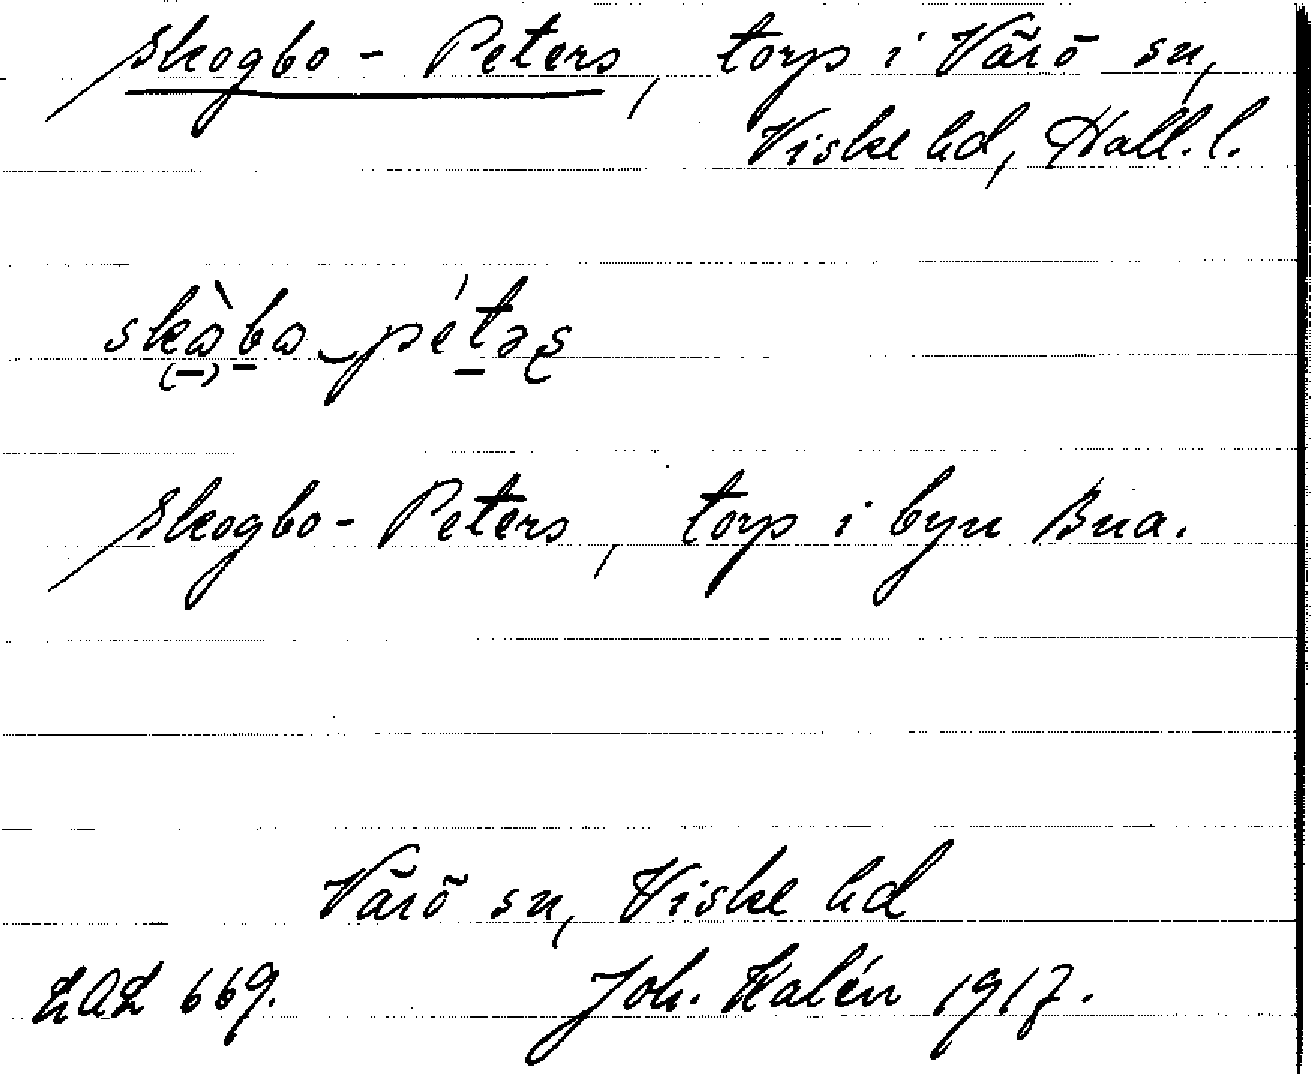 Skogbo-Peters, torp i Värö sn,
Viske hd, Hall. l.
skòbo-pétəʂ
Skogbo-Peters, torp i byn Bua.
Värö sn, Viske hd
LAL 669. Joh. Kalén 1917.